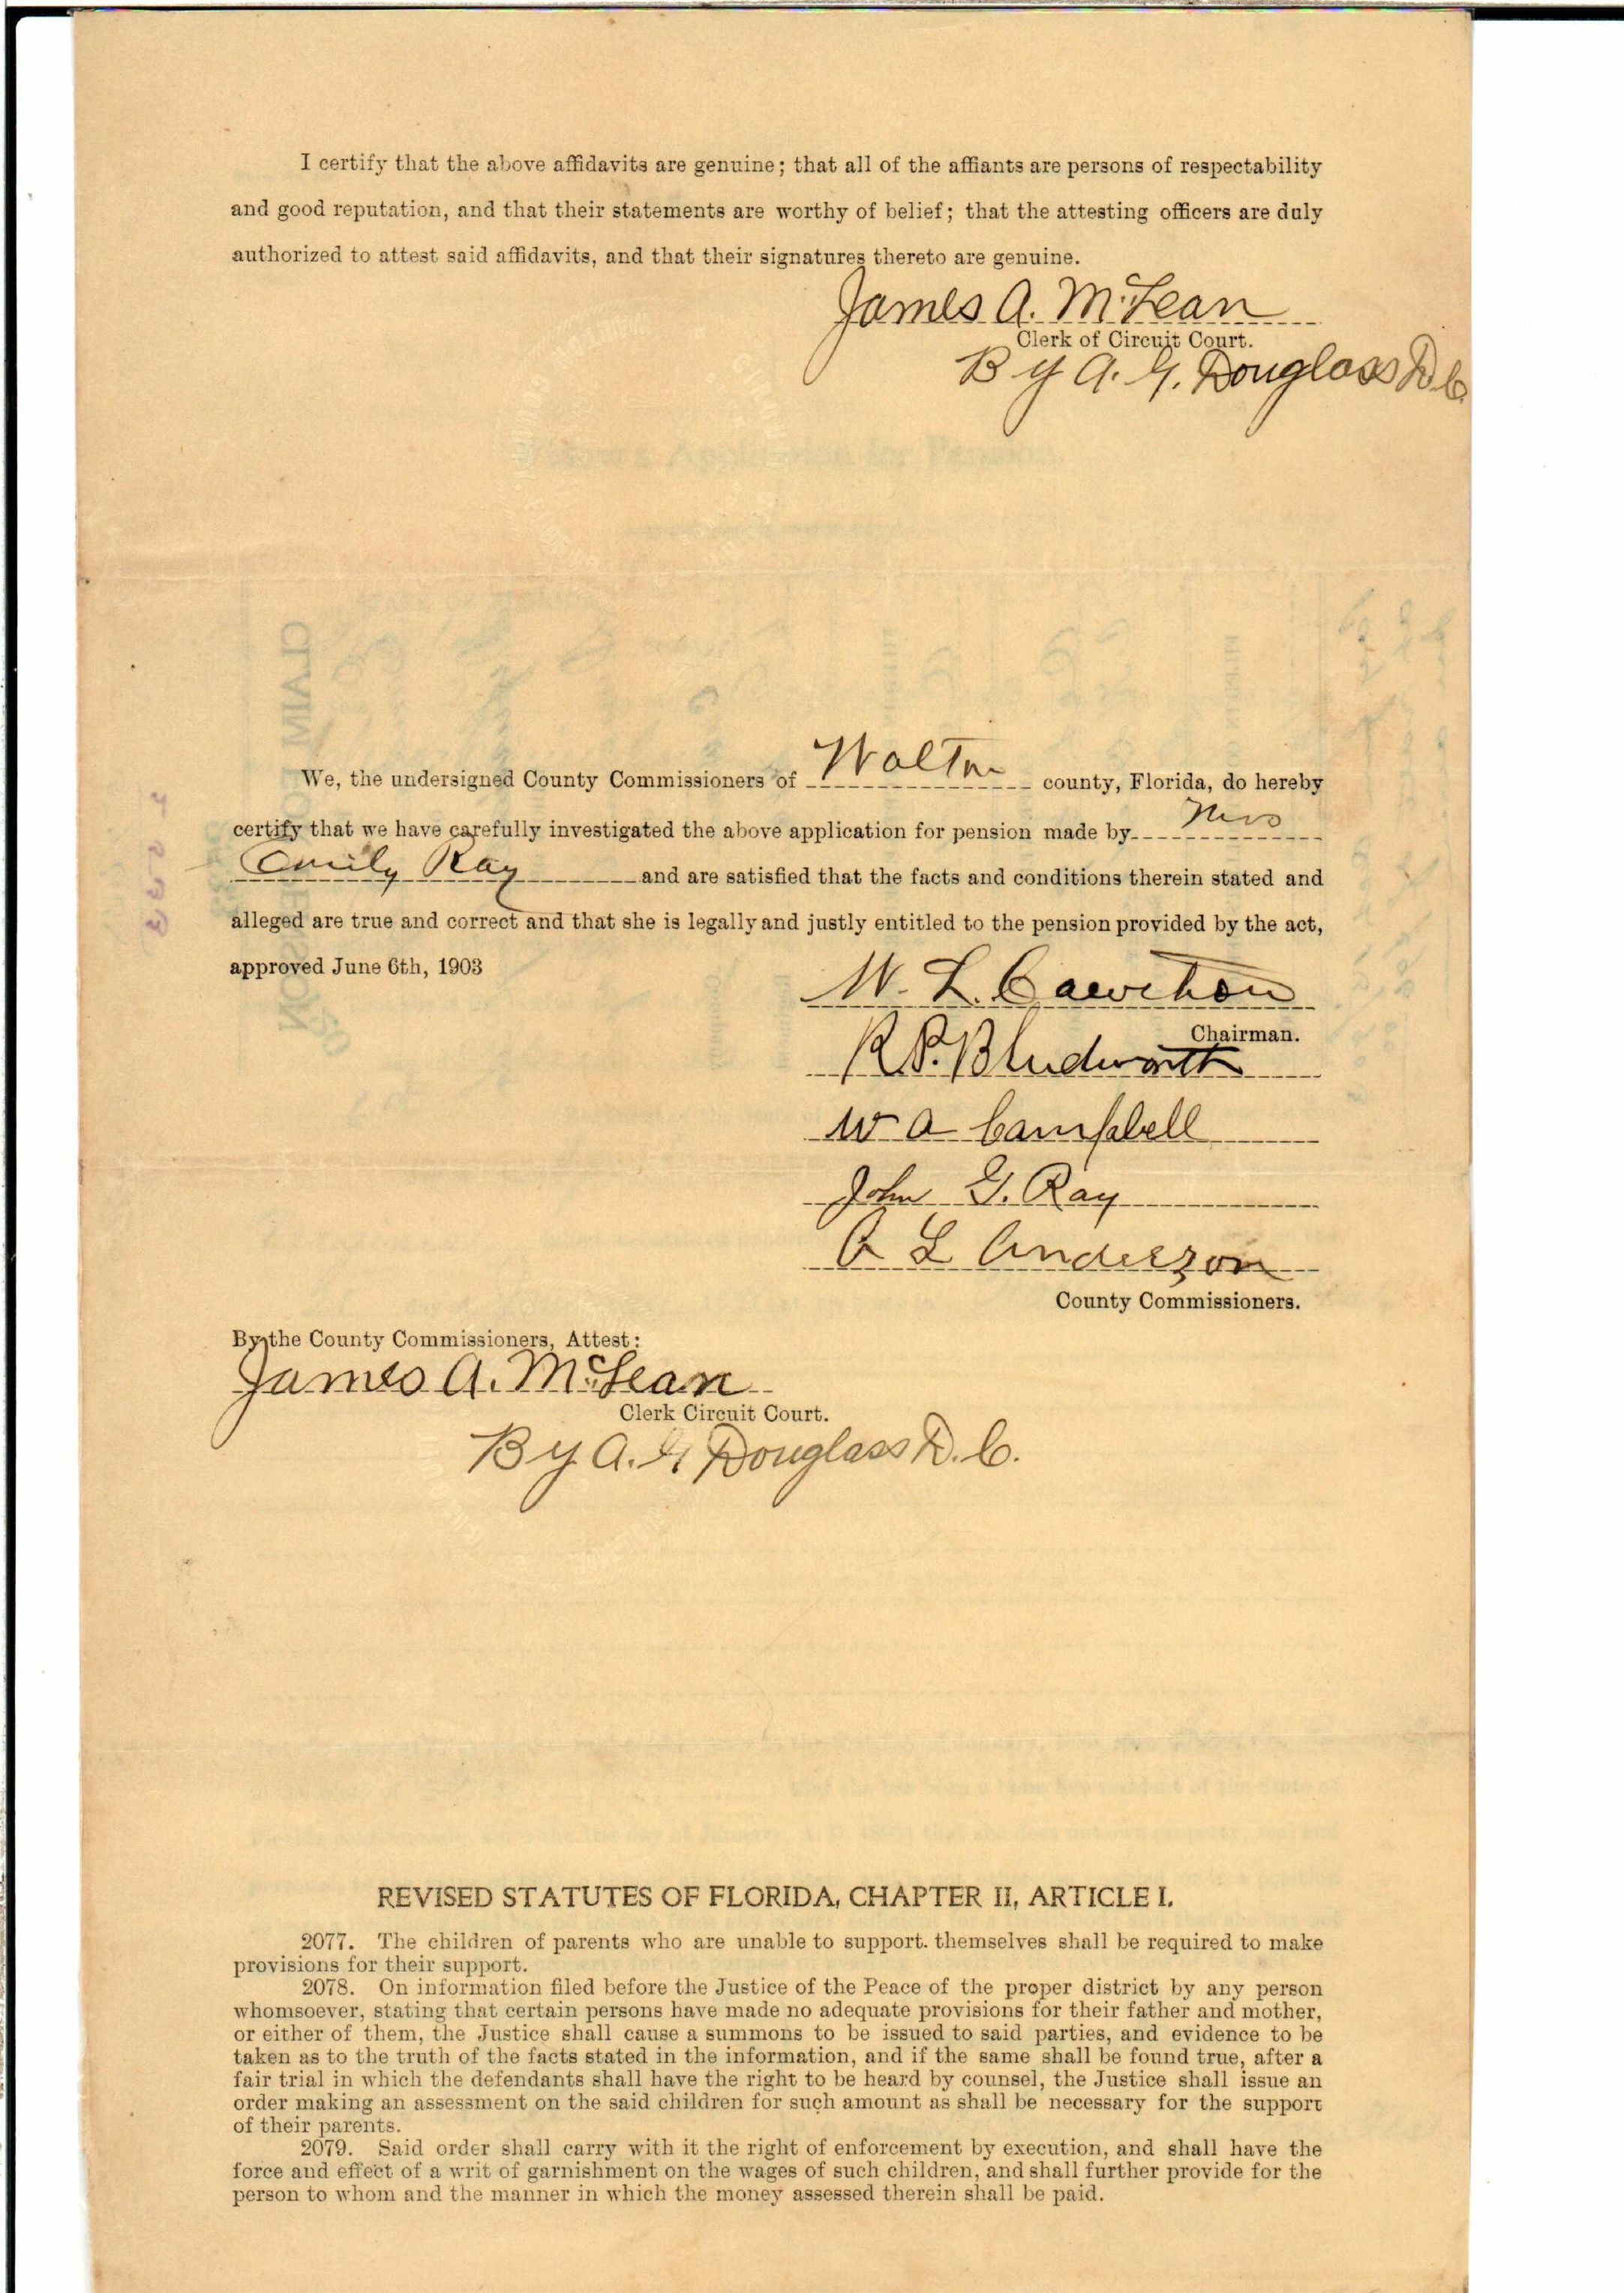 I certify that the above affidavits are genuine; that all of the affiants are persons of respectability
and good reputation, and that their statements are worthy of belief; that the attesting officers are duly
authorized to attest said affidavits, and that their signatures thereto are genuine.
James A. McLean
Clerk of Circuit Court.
By A. G. Douglass D C
Widow's Application for Pension.
CLAIM FOR PENSION
We, the undersigned County Commissioners of Walton county, Florida, do hereby
certify that we have carefully investigated the above application for pension made by Mrs
Emily Ray and are satisfied that the facts and conditions therein stated and
alleged are true and correct and that she is legally and justly entitled to the pension provided by the act,
approved June 6th, 1903
W. L. Cawthon
Chairman.
R P. Bludworth
W A Campbell
John G. Ray
A L Anderson
County Commissioners.
By the County Commissioners, Attest:
James A. McLean
Clerk Circuit Court.
By A. G Douglass D. C.
REVISED STATUTES OF FLORIDA, CHAPTER II, ARTICLE I.
2077. The children of parents who are unable to support. themselves shall be required to make
provisions for their support.
2078. On information filed before the Justice of the Peace of the proper district by any person
whomsoever, stating that certain persons have made no adequate provisions for their father and mother,
or either of them, the Justice shall cause a summons to be issued to said parties, and evidence to be
taken as to the truth of the facts stated in the information, and if the same shall be found true, after a
fair trial in which the defendants shall have the right to be heard by counsel, the Justice shall issue an
order making an assessment on the said children for such amount as shall be necessary for the support
of their parents.
2079. Said order shall carry with it the right of enforcement by execution, and shall have the
force and effect of a writ of garnishment on the wages of such children, and shall further provide for the
person to whom and the manner in which the money assessed therein shall be paid.